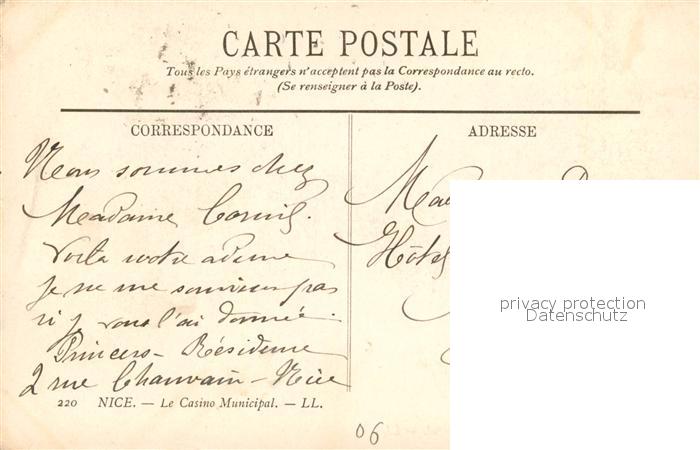 CARTE POSTALE
Tous les Pays étrangers n'acceptent pas la Correspondance au recto.
(Se renseigner à la Poste).
CORRESPONDANCE
ADRESSE
Nous sommes chez
Madame Cornil.
Voilà notre adresse
je ne me souviens pas
si je vous l'ai donnée.
Princess-Résidence
2 rue Chauvain - Nice
Hôtel
220 NICE. — Le Casino Municipal. — LL.
06
privacy protection
Datenschutz